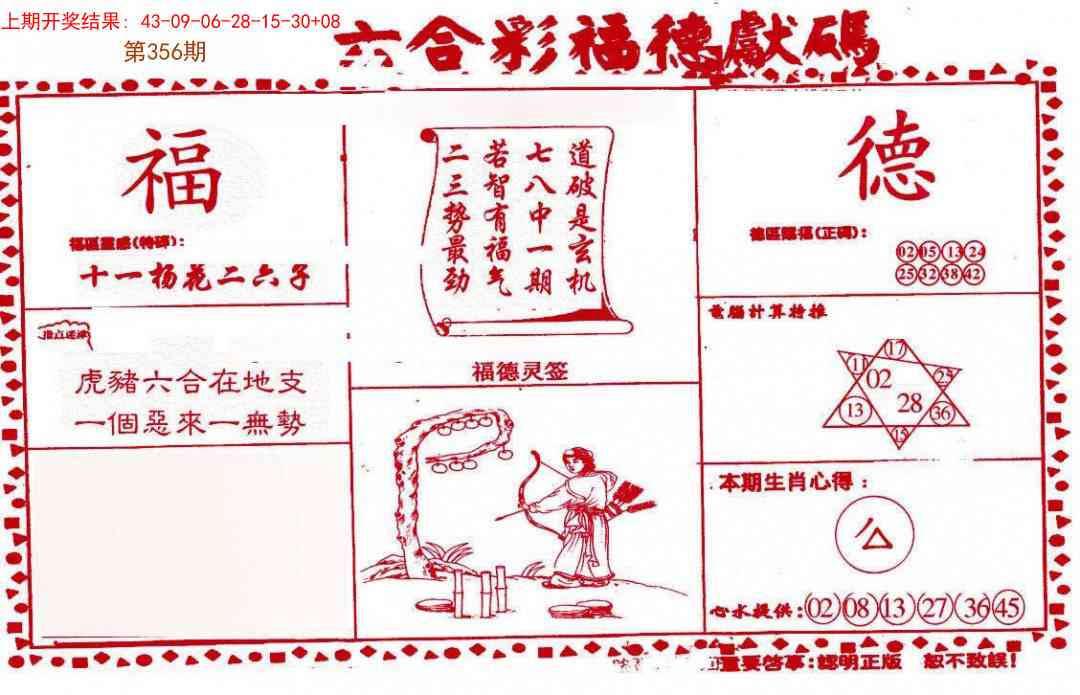 上期开奖结果: 43-09-06-28-15-30+08
第356期
六合彩福德獻碼
福
福區靈感(特碼):
十一杨花二六子
虎豬六合在地支
一個惡來一無勢
道破是玄机
七八中一期
若智有福气
二三势最劲
福德灵签
德
02 05 13 24
25 32 38 42
電腦計算特推
17
11 02 25
13 28 36
15
本期生肖心得:
心水提供:02 08 13 27 36 45
重要啓事:認明正版 恕不致誤!